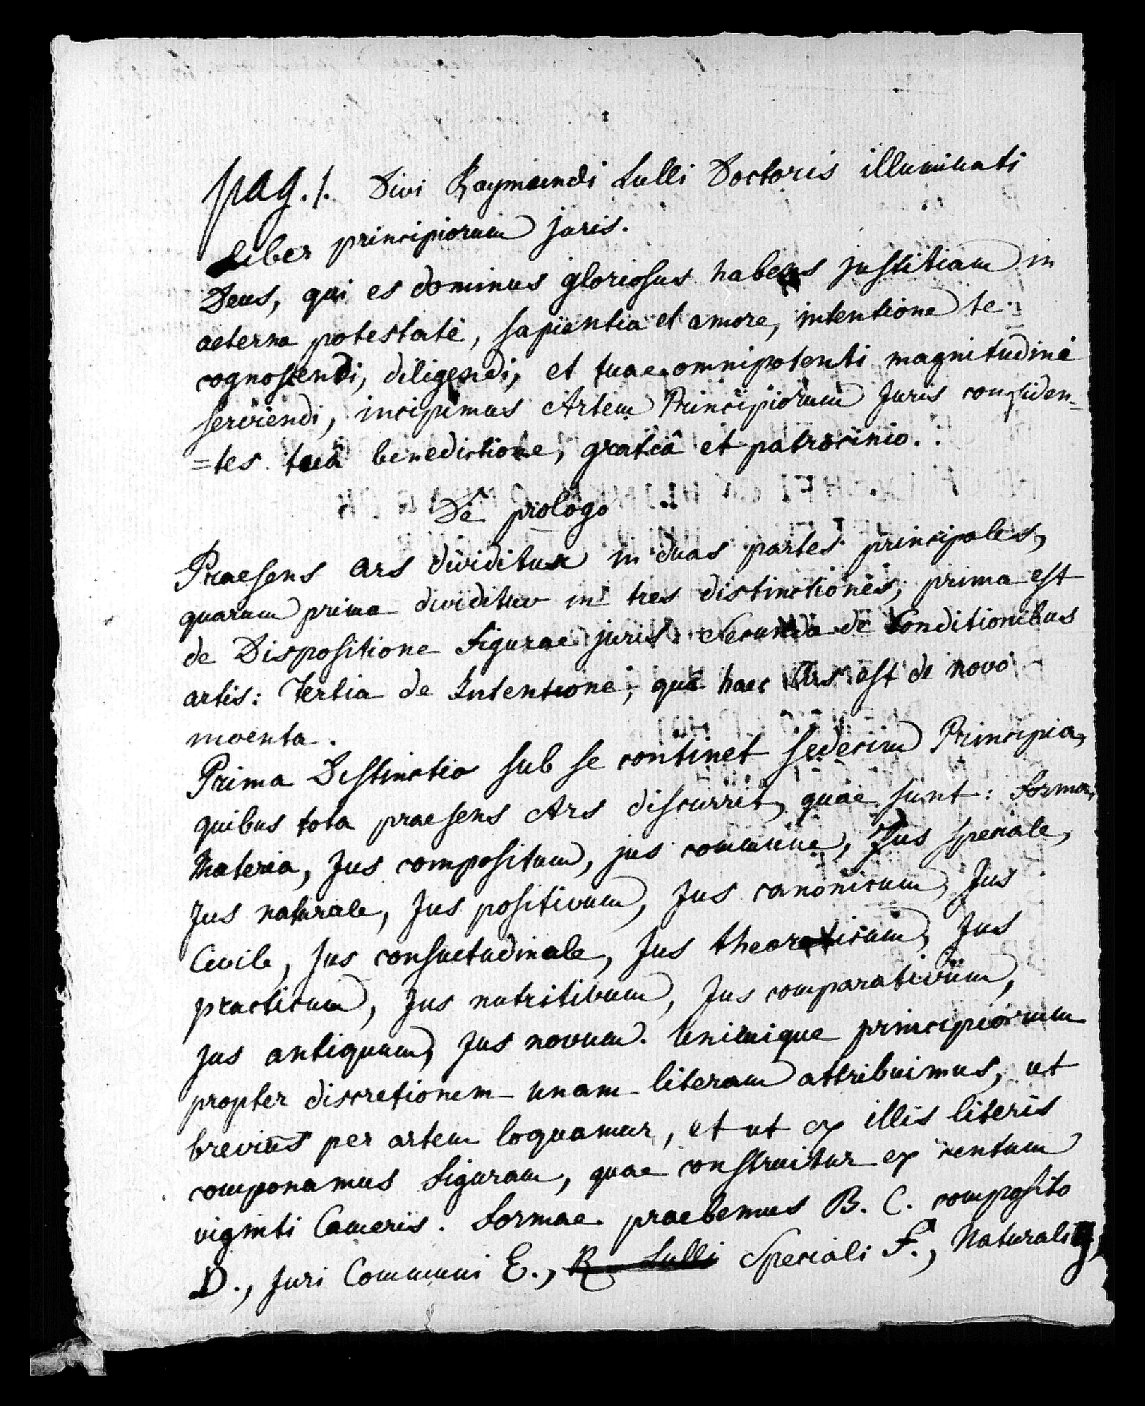 pag. 1. Divi Raymundi Lulli Doctoris illuminati
Liber principiorum juris.
Deus, qui es dominus gloriosus habens justitiam in
aeterna potestate, sapientia et amore, intentione te
cognoscendi, diligendi, et tuae omnipotenti magnitudine
serviendi, incipimus Artem Principiorum Juris confiden=
=tes tuâ benedictione, gratiâ et patrocinio.
De prologo
Praesens ars dividitur in duas partes principales,
quarum prima dividitur in tres distinctiones, prima est
de Dispositione Figurae juris: Secunda de Conditionibus
artis: Tertia de Intentione, quâ haec Ars est de novo
inventa.
Prima Distinctio sub se continet sedecim Principia,
quibus tota praesens Ars discurrit, quae sunt: Forma,
Materia, Jus compositum, jus commune, Jus speciale,
Jus naturale, Jus positivum, Jus canonicum, Jus
Civile, Jus consuetudinale, Jus theoreticum, Jus
practicum, Jus nutritivum, Jus comparativum,
Jus antiquum, Jus novum. Unicuique principiorum
propter discretionem unam literam attribuimus, ut
brevius per artem loquamur, et ut ex illis literis
componamus figuram, quae construitur ex centum
viginti Cameris. Formae praebemus B. C. composito
D., Juri Communi E., R. Lulli Speciali F., Naturali G,